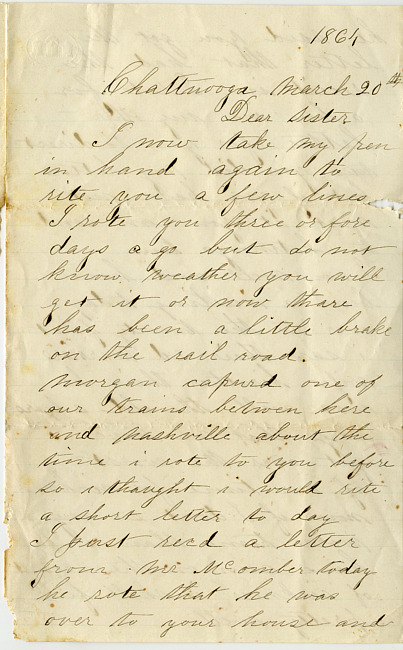 1864
Chattnooga March 20th
Dear Sister
I now take my pen
in hand again to
rite you a few lines
I rote you three or fore
days a go but do not
know weather you will
get it or now thare
has been a little brake
on the rail road.
Morgan capurd one of
our trains between here
and Nashville about the
time i rote to you before
so i thaught i would rite
a short letter to day
I just recd a letter
from Mr McOmber today
he rote that he was
over to your house and